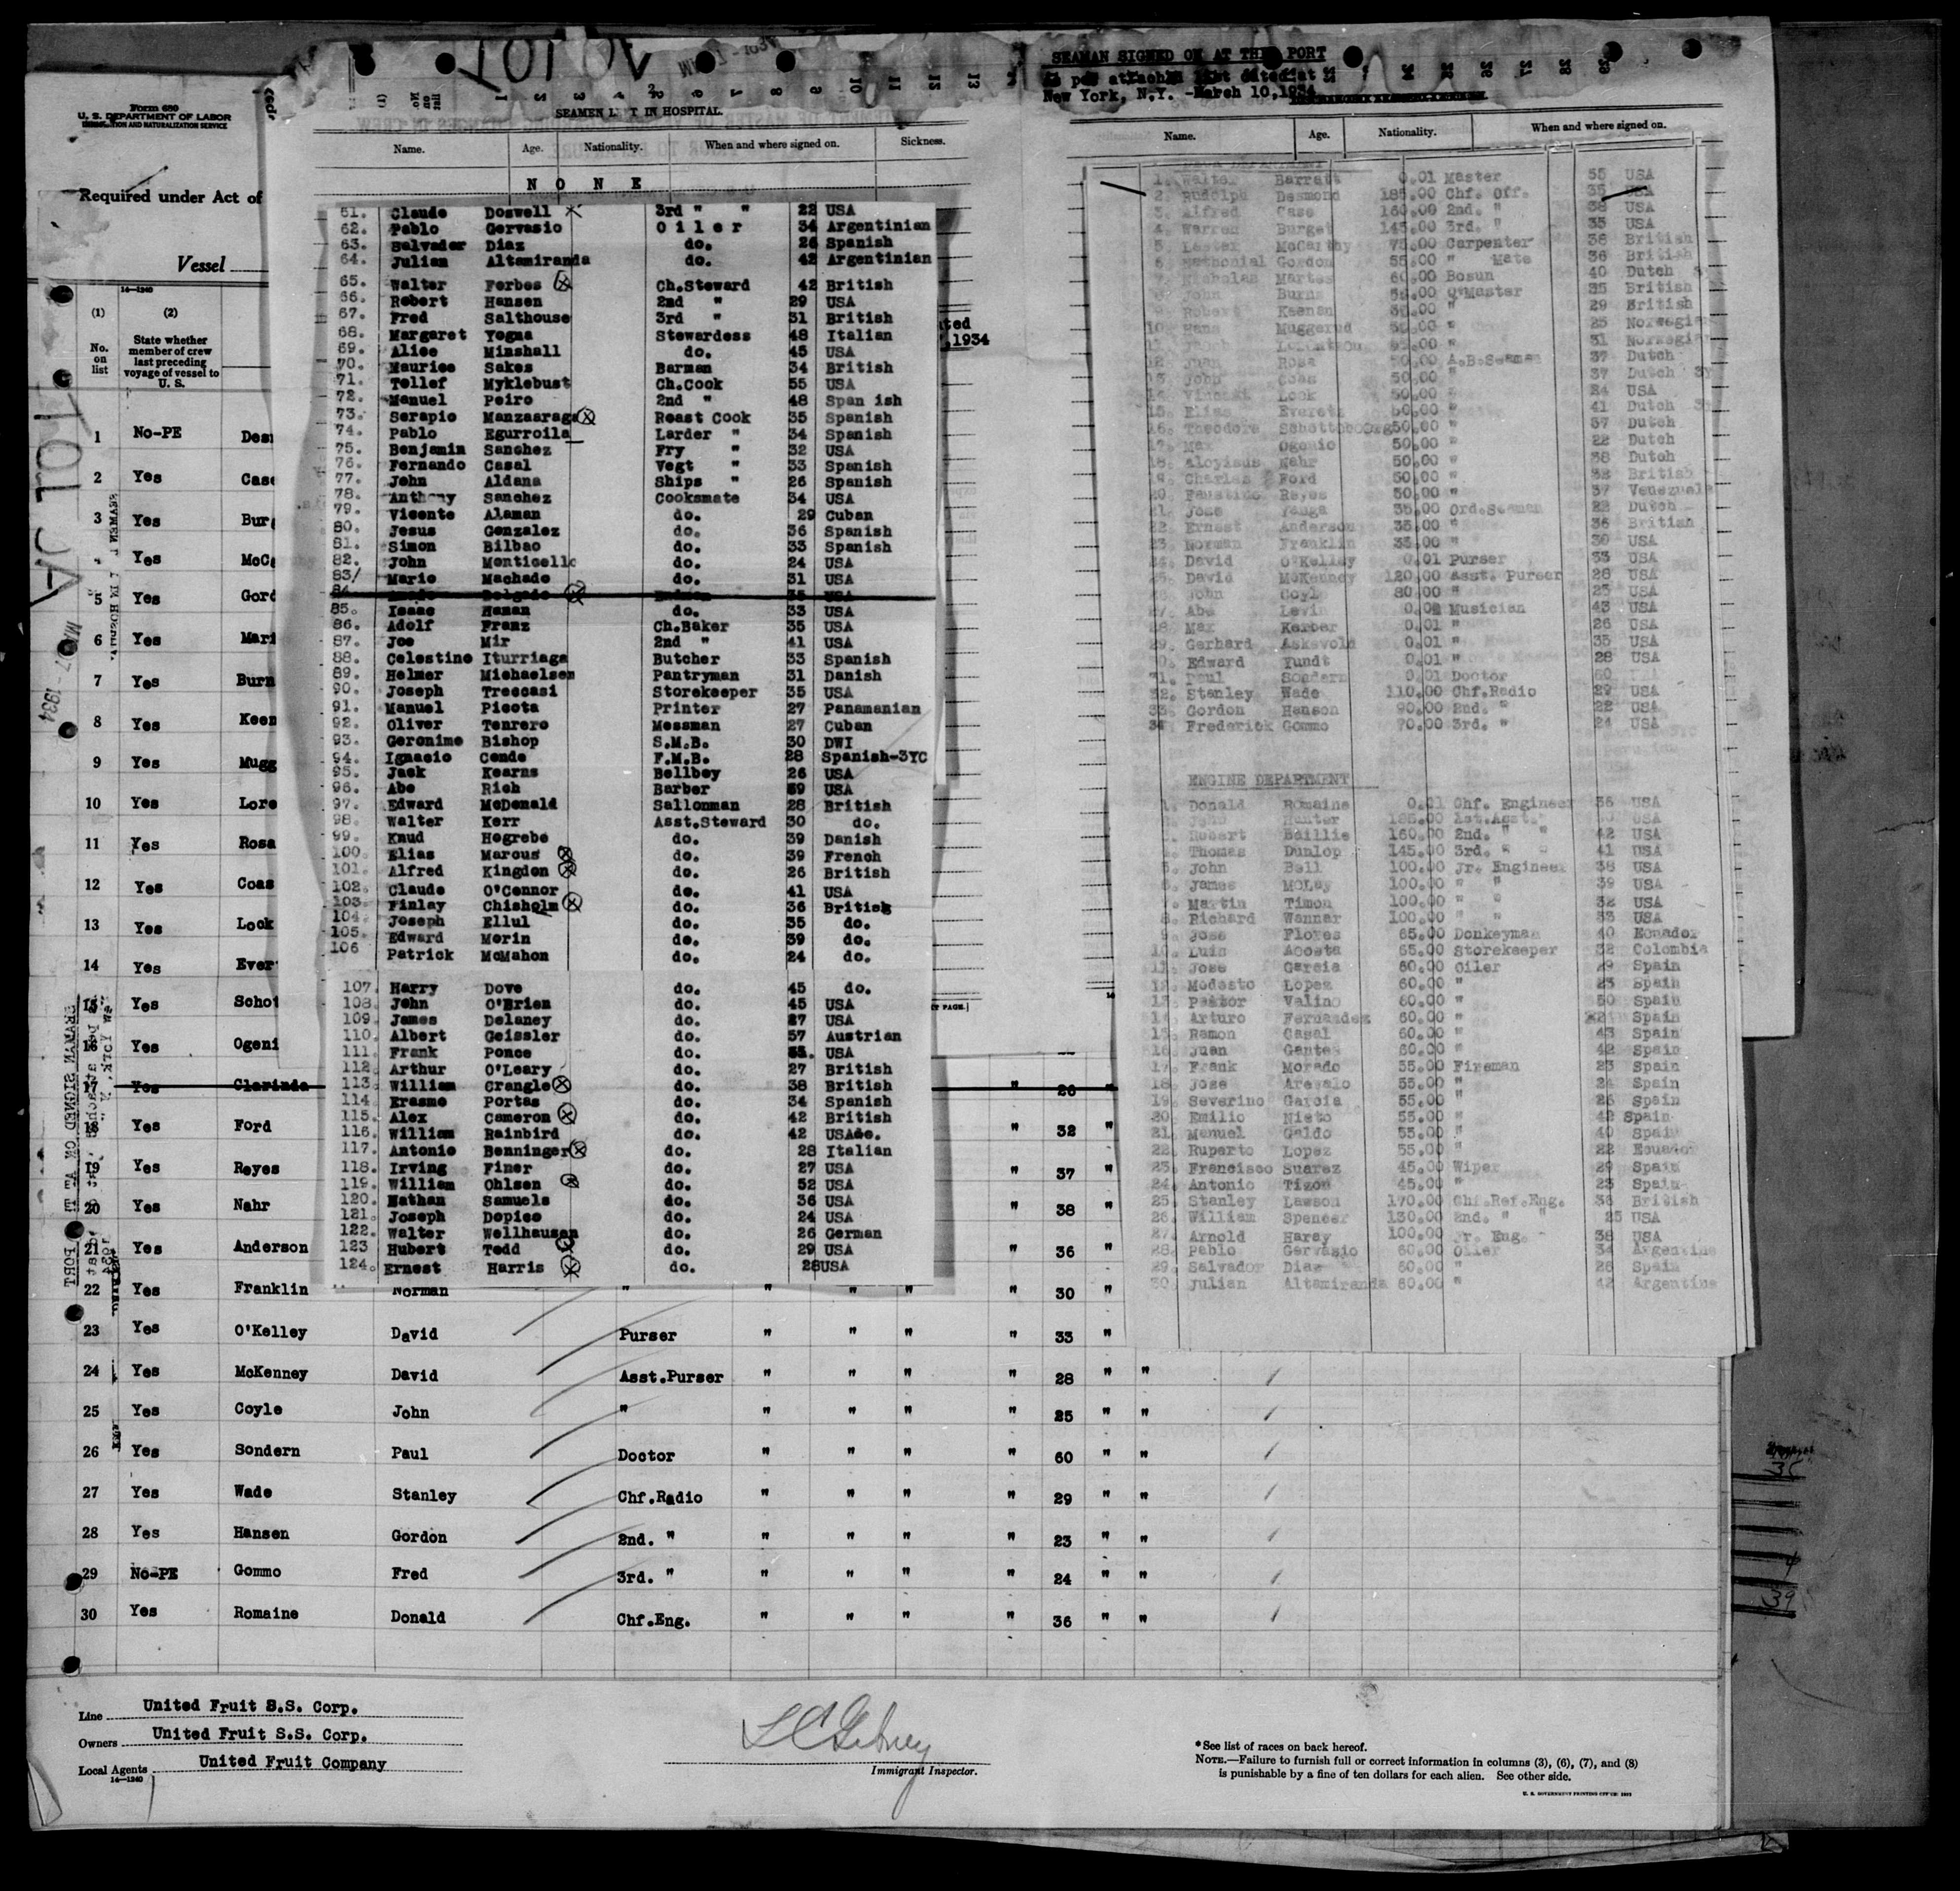 Form 680
U. S. DEPARTMENT OF LABOR
IMMIGRATION AND NATURALIZATION SERVICE
Required under Act of
Vessel
14—1240
(1) (2)
No. on list
State whether member of crew last preceding voyage of vessel to U. S.
1 No-PE
2 Yes
3 Yes
Yes
5 Yes
6 Yes
7 Yes
8 Yes
9 Yes
10 Yes
11 Yes Rosa
12 Yes Coas
13 Yes Look
14 Yes
15 Yes
16 Yes
17 Yes Clarinda " 26 "
18 Yes Ford " 32 "
19 Yes Reyes " 37 "
20 Yes Nahr " 38 "
21 Yes Anderson " 36 "
22 Yes Franklin Norman " " " " " 30 "
23 Yes O'Kelley David Purser " " " " 33 "
24 Yes McKenney David Asst.Purser " " " " 28 " "
25 Yes Coyle John " " " " " 25 " "
26 Yes Sondern Paul Doctor " " " " 60 " "
27 Yes Wade Stanley Chf.Radio " " " " 29 " "
28 Yes Hansen Gordon 2nd. " " " " " 23 " "
29 No-PE Gommo Fred 3rd. " " " " " 24 " "
30 Yes Romaine Donald Chf.Eng. " " " " 36 " "
Line United Fruit S.S. Corp.
Owners United Fruit S.S. Corp.
Local Agents United Fruit Company
14—1240
Immigrant Inspector.
*See list of races on back hereof.
NOTE.—Failure to furnish full or correct information in columns (3), (6), (7), and (8)
is punishable by a fine of ten dollars for each alien. See other side.
SEAMEN IN HOSPITAL.
Name. Age. Nationality. When and where signed on. Sickness.
NONE
61. Claude Doswell 3rd " " 22 USA
62. Pablo Gervasio Oiler 34 Argentinian
63. Salvador Diaz do. 26 Spanish
64. Julian Altamiranda do. 42 Argentinian
65. Walter Forbes Ch.Steward 42 British
66. Robert Hansen 2nd " 29 USA
67. Fred Salthouse 3rd " 31 British
68. Margaret Yegna Stewardess 48 Italian
69. Alice Minshall do. 45 USA
70. Maurice Sakes Barman 34 British
71. Tellef Myklebust Ch.Cook 55 USA
72. Manuel Peiro 2nd " 48 Span ish
73. Serapio Manzaaraga Roast Cook 35 Spanish
74. Pablo Egurroila Larder " 34 Spanish
75. Benjamin Sanchez Fry " 32 USA
76. Fernando Casal Vegt " 33 Spanish
77. John Aldana Ships " 26 Spanish
78. Anthony Sanchez Cooksmate 34 USA
79. Vicente Alaman do. 29 Cuban
80. Jesus Genzalez do. 36 Spanish
81. Simon Bilbao do. 33 Spanish
82. John Monticello do. 24 USA
83/ Mario Machado do. 31 USA
84. Delgado USA
85. Isaac Haman do. 33 USA
86. Adolf Franz Ch.Baker 35 USA
87. Joe Mir 2nd " 41 USA
88. Celestine Iturriaga Butcher 33 Spanish
89. Helmer Michaelsen Pantryman 31 Danish
90. Joseph Treccasi Storekeeper 35 USA
91. Manuel Picota Printer 27 Panamanian
92. Oliver Tenrero Messman 27 Cuban
93. Geronimo Bishop S.M.B. 30 DWI
94. Ignacio Conde F.M.B. 28 Spanish-3YC
95. Jack Kearns Bellboy 26 USA
96. Abe Rich Barber USA
97. Edward McDonald Sallonman 28 British
98. Walter Kerr Asst.Steward 30 do.
99. Knud Hogrebe do. 39 Danish
100. Elias Marcus do. 39 French
101. Alfred Kingdon do. 26 British
102. Claude O'Connor do. 41 USA
103. Finlay Chisholm do. 36 British
104. Joseph Ellul do. 35 do.
105. Edward Morin do. 39 do.
106 Patrick McMahon do. 24 do.
107. Harry Dove do. 45 do.
108. John O'Brien do. 45 USA
109. James Delaney do. 27 USA
110. Albert Geissler do. 57 Austrian
111. Frank Ponce do. USA
112. Arthur O'Leary do. 27 British
113. William Crangle do. 38 British
114. Erasmo Portas do. 34 Spanish
115. Alex Cameron do. 42 British
116. William Rainbird do. 42 USAdo.
117. Antonio Benninger do. 28 Italian
118. Irving Finer do. 27 USA
119. William Ohlsen do. 52 USA
120. Nathan Samuels do. 36 USA
121. Joseph Dopico do. 24 USA
122. Walter Wellhausen do. 26 German
123 Hubert Todd do. 29 USA
124. Ernest Harris do. 28USA
SEAMAN SIGNED ON AT THE PORT
As per attached list dated at
New York, N.Y. -March 10,1934
Name. Age. Nationality. When and where signed on.
1. Walter Barrett 0.01 Master 55 USA
2. Rudolph Desmond 185.00 Chf. Off. 35 USA
3. Alfred Case 160.00 2nd. " 38 USA
4. Warren Burget 145.00 3rd. " 35 USA
5. Lester McCarthy 75.00 Carpenter 38 British
6. Gordon 55.00 " Mate 36 British
7. Nicholas 60.00 Bosun 40 Dutch
8. John Burns Q'Master 35 British
9. Robert Keenan " 29 British
10. Hans Muggerud " 25
12. Juan Rosa 50.00 A.B.Seaman 37 Dutch
13. John Coas 50.00 " 37 Dutch
14. Look 50.00 " 24 USA
15. Elias Everett " 41 Dutch
16. Theodore 50.00 " 37 Dutch
17. Max Ogenio 50.00 " 22 Dutch
18. Aloyisus Nahr 50.00 " 38 Dutch
19. Charles Ford 50.00 " 32 British
20. Faustino Reyes 50.00 " 37 Venezuela
21. Jose 35.00 Ord.Seaman 22 Dutch
22. Ernest Anderson 35.00 " 36 British
23. Norman Franklin 35.00 " 30 USA
24. David O'Kelley 0.01 Purser 33 USA
25. David McKenney 120.00 Asst. Purser 28 USA
26. John Coyl 80.00 " 25 USA
27. Abe Levin Musician 43 USA
28. Max Kerber 0.01 " 26 USA
29. Gerhard Askevold 0.01 " 35 USA
30. Edward Yundt 0.01 " 28 USA
31. Paul Sondern 0.01 Doctor 60
32. Stanley Wade 110.00 Chf.Radio 29 USA
33 Gordon Hanson 90.00 2nd. " 22 USA
34 Frederick Gommo 70.00 3rd. " 24 USA
ENGINE DEPARTMENT
1. Donald Romaine 0.01 Chf. Engineer 36 USA
Hunter 1st.Asst. USA
Robert Baillie 160.00 2nd. " " 42 USA
Thomas Dunlop 145.00 3rd. " " 41 USA
5. John Bell 100.00 Jr. Engineer 38 USA
6. James McLay 100.00 " " 39 USA
Martin Timon 100.00 " " 32 USA
8. Richard Wannar 100.00 " " 33 USA
9. Jose Flores 65.00 Donkeyman 40 Ecuador
10. Luis Acosta 65.00 Storekeeper 32 Colombia
11. Jose Garcia 60.00 Oiler 29 Spain
12. Modesto Lopez 60.00 " 23 Spain
13. Pastor Valino 60.00 " 50 Spain
14. Arturo Fernandez 60.00 " Spain
15. Ramon Casal 60.00 " 43 Spain
16. Juan 60.00 " 42 Spain
17. Frank Morado 55.00 Fireman 23 Spain
18. Jose Arevalo 55.00 " 24 Spain
19. Severino Garcia 55.00 " 26 Spain
20. Emilio Nieto 55.00 " 42 Spain
21. Manuel Galdo 55.00 " 40 Spain
22. Ruperto Lopez 55.00 " 22 Ecuador
23. Francisco Suarez 45.00 Wiper 29 Spain
24. Antonio Tizon 45.00 " 23 Spain
25. Stanley Lawson 170.00 Chf.Ref.Eng. 36 British
26. William Spencer 130.00 2nd. " " 25 USA
27. Arnold Haray 100.00 Jr. Eng. 38 USA
28. Pablo Gervasio 60.00 Oiler 34 Argentine
29. Salvador Diaz 60.00 " 26 Spain
30. Julian Altamiranda 60.00 " 42 Argentine